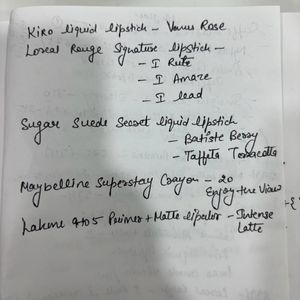 Kiro liquid lipstick - Venus Rose
Loreal Rouge Signature lipstick -
- I Rule
- I Amaze
- I lead
Sugar Suede Secret liquid lipstick
- Batiste Berry
- Taffeta Terracotta
Maybelline Superstay Crayon - 20
Enjoy the View
Lakme 9to5 Primer + Matte lipcolor - Intense
Latte